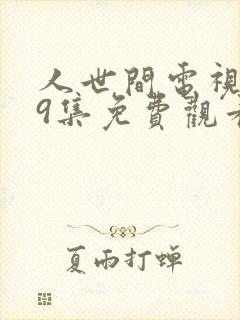 人世間電視
9集免費觀看
夏雨打蝉